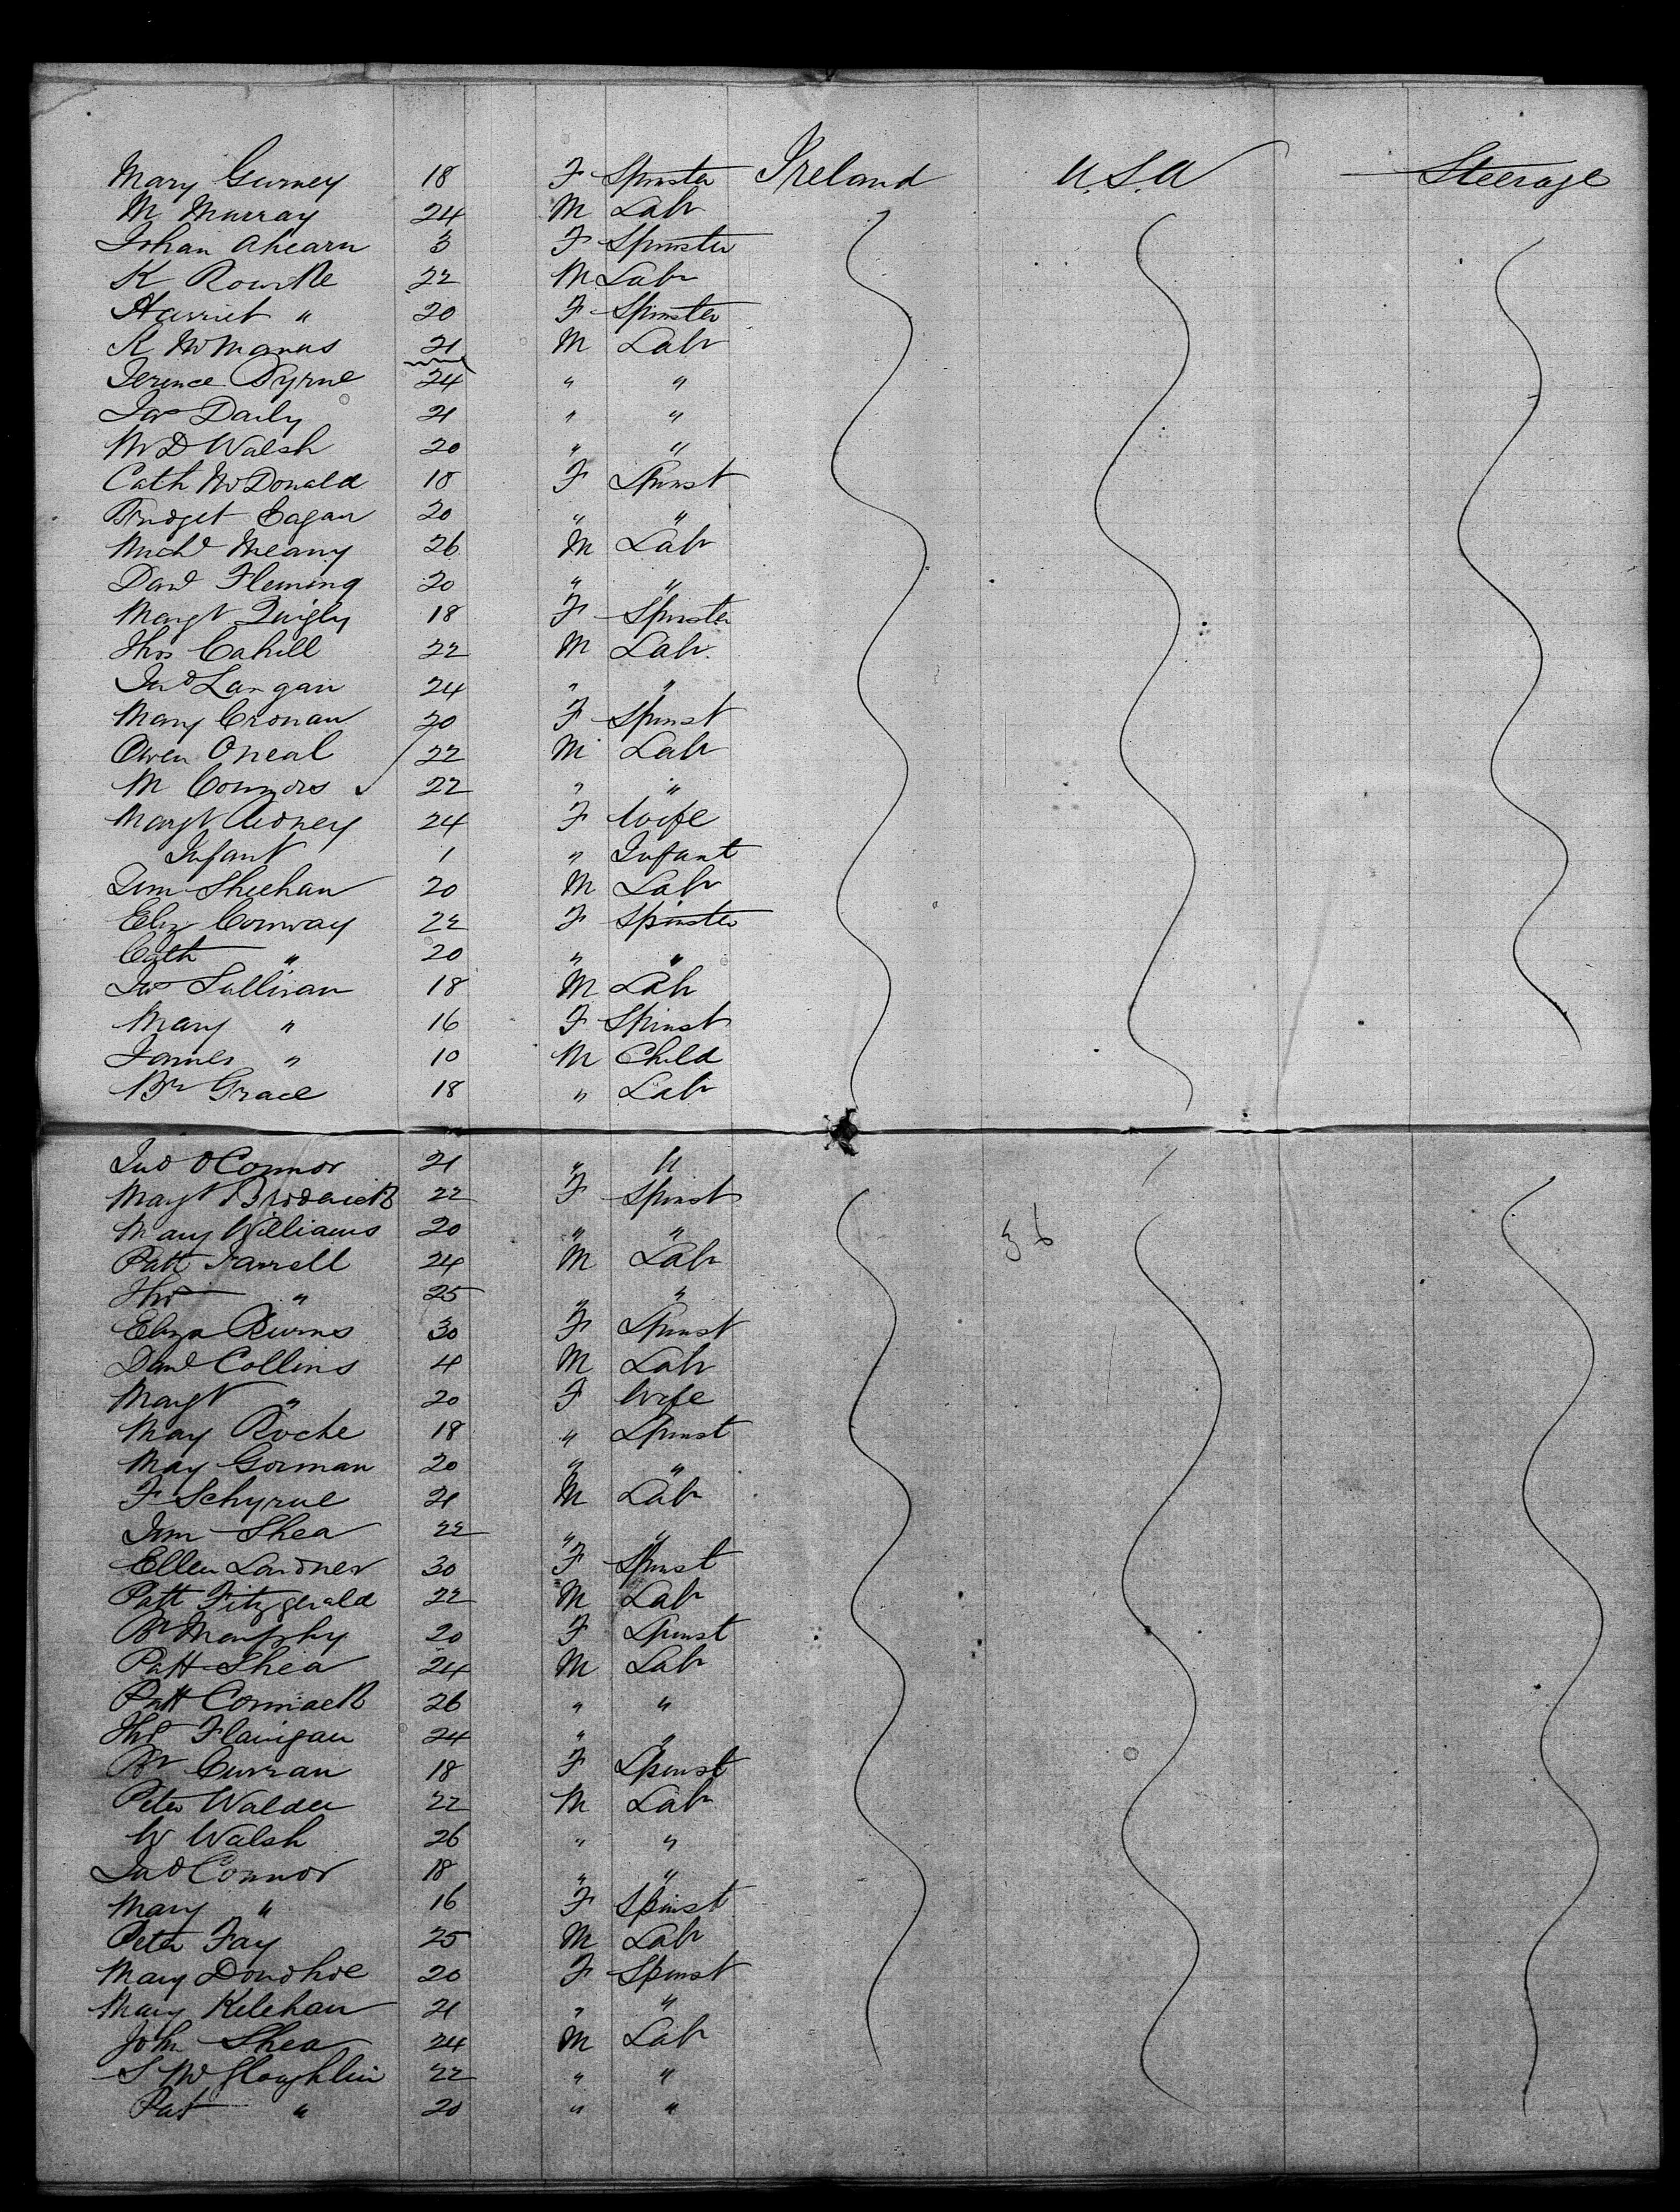 Mary Gurney 18 F Spinster Ireland U.S.A Steerage
M Murray 24 M Labr
Johan Ahearn 3 F Spinster
K Rourke 22 M Labr
Harriet " 20 F Spinster
K McManus 21 M Labr
Terence Byrne 24 " "
Jas Daily 21 " "
McD Walsh 20 " "
Cath McDonald 18 F Spinst
Bridget Eagan 20 " "
Michl Meany 26 M Labr
Danl Fleming 20 " "
Margt Quigly 18 F Spinster
Thos Cahill 22 M Labr
Jno Langan 24 " "
Mary Cronan 20 F Spinst
Owen Oneal 22 M Labr
M Connors 22 " "
Margt 24 F Wife
Infant 1 " Infant
Tim Sheehan 20 M Labr
Eliz Conway 22 F Spinster
Cath " 20 " "
Jas Sullivan 18 M Labr
Mary " 16 F Spinst
James " 10 M Child
Br Grace 18 " Labr
Jno OConnor 21 " "
Margt Broderick 22 F Spinst
Mary Williams 20 " " 36
Patt Farrell 24 M Labr
Thos " 25 " "
Eliza Burns 30 F Spinst
Danl Collins 4 M Labr
Margt " 20 F Wife
May Roche 18 " Spinst
May Gorman 20 " "
F Schyrne 21 M Labr
Tim Shea 22 " "
Ellen Lardner 30 F Spinst
Patt Fitzgerald 22 M Labr
Br Murphy 20 F Spinst
Patt Shea 24 M Labr
Patt Cormack 26 " "
Thos Flanigan 24 " "
Br Curran 18 F Spinst
Peter Walder 22 M Labr
W Walsh 26 " "
Jno Connor 18 " "
Mary " 16 F Spinst
Peter Fay 25 M Labr
Mary Donohoe 20 F Spinst
Mary Kelehan 21 " "
John Shea 24 M Labr
S McGloughlin 22 " "
Pat " 20 " "